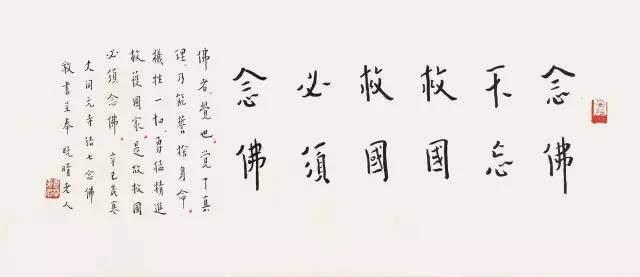 念佛
不忘
救國
救國
必須
念佛
佛者、覺也。覺了真
理、乃能誓捨身命、
犧牲一切、勇猛精進、
救護國家。是故救國
必須念佛。辛巳歲寒
大開元寺結七念佛
敬書呈奉 晚晴老人